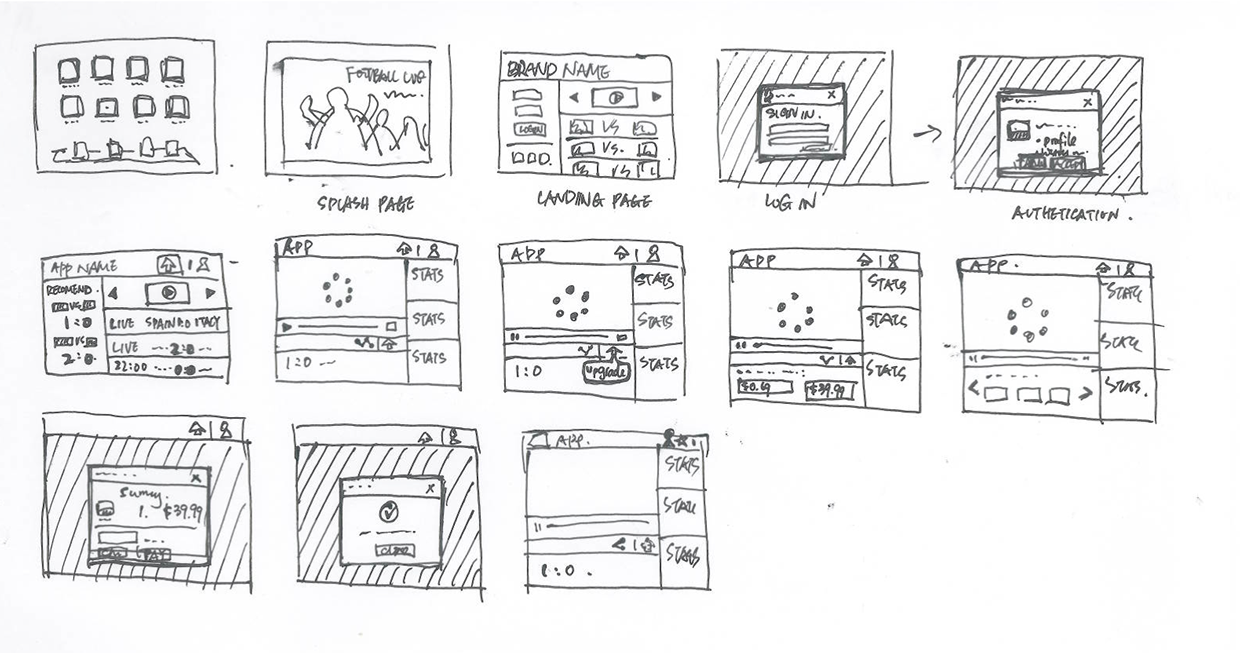 FOOTBALL CUP
SPLASH PAGE
BRAND NAME
LOGIN
VS
VS.
VS
LANDING PAGE
SIGN IN.
LOG IN
profile
AUTHETICATION.
APP NAME
RECOMEND.
VS
1:0
VS
2:0.
LIVE SPAIN 2:0 ITALY
LIVE 2:0
22:00 0:0
APP
STATS
STATS
STATS
1:0
APP
STATS
STATS
STATS
1:0
upgrade
APP
STATS
STATS
STATS
$0.69 $39.99
APP.
STATS
STATS
STATS.
1. $39.99
PAY
APP.
STATS
STATS
STATS
1:0.